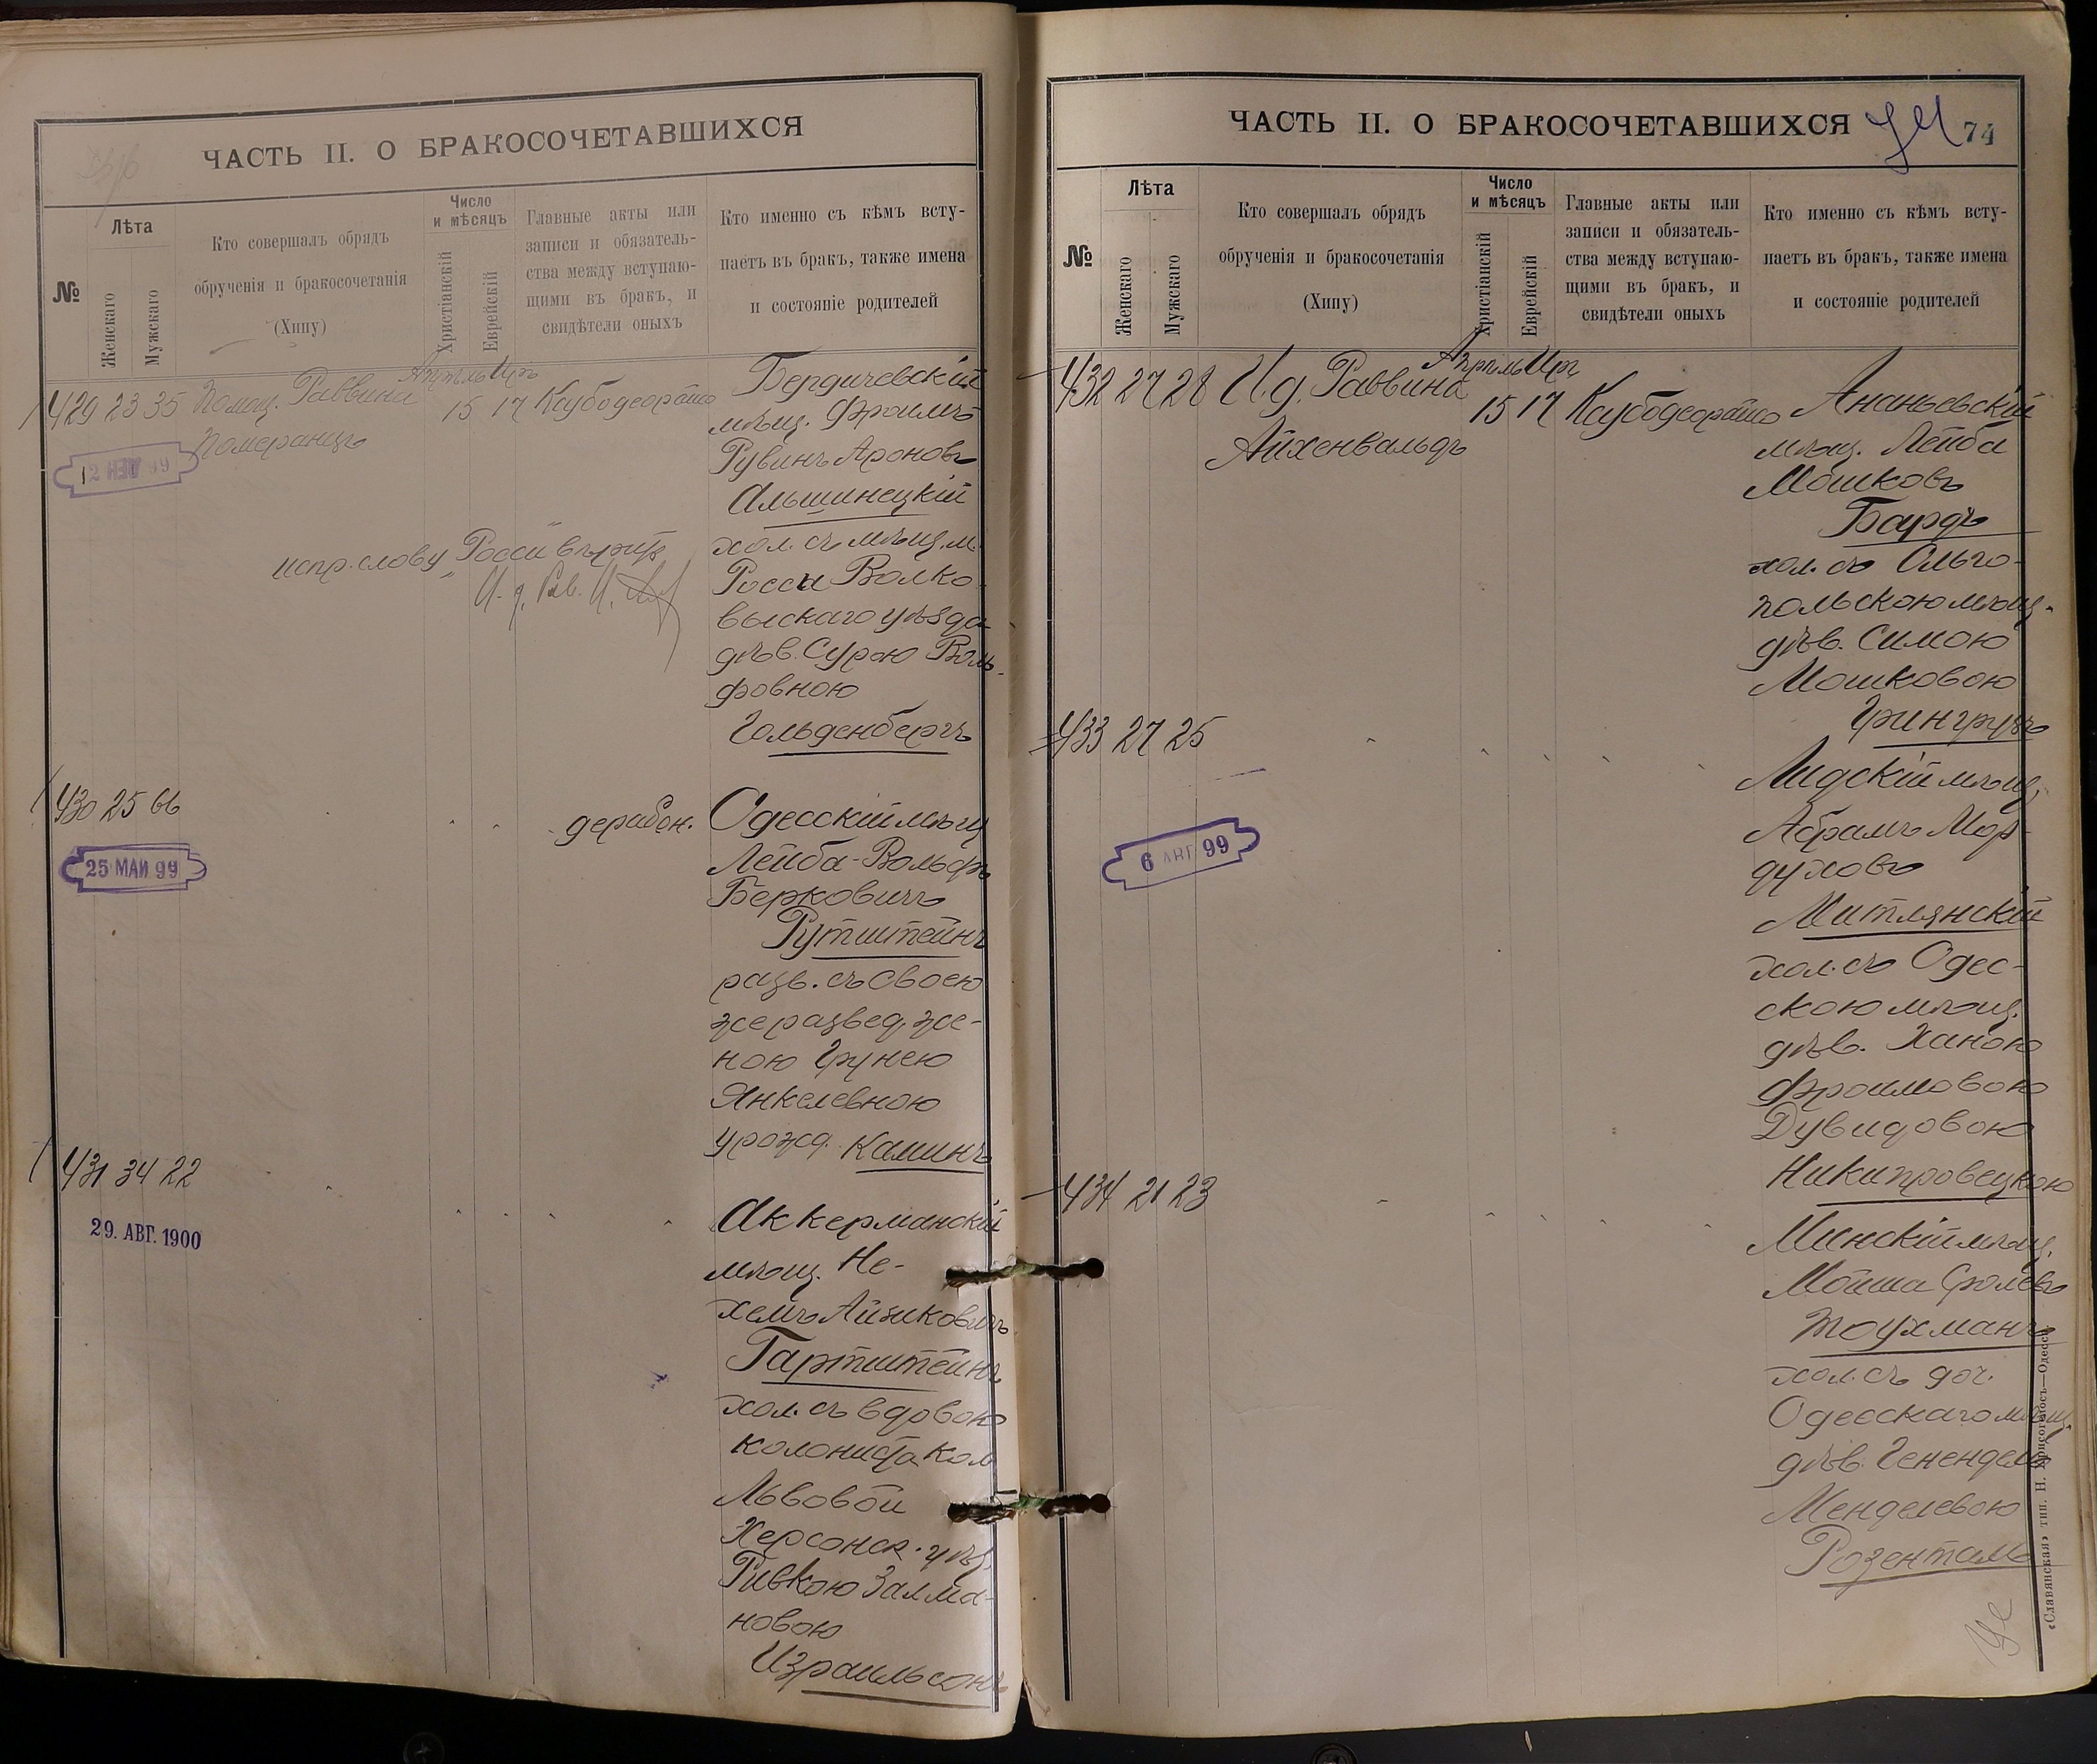 ЧАСТЬ II. О БРАКОСОЧЕТАВШИХСЯ
№
Лѣта
Женскаго
Мужскаго
Кто совершалъ обрядъ
обрученія и бракосочетанія
(Хипу)
Число
и мѣсяцъ
Христіанскій
Еврейскій
Главные акты или
записи и обязатель-
ства между вступаю-
щими въ бракъ, и
свидѣтели оныхъ
Кто именно съ кѣмъ всту-
паетъ въ бракъ, также имена
и состояніе родителей
429 23 35 Помощ. Раввина
Померанцъ
Апрѣль Иръ
15 17
Бердичевскій
мѣщ. Фроимъ
Рувинъ Ароновъ
Альшинецкій
хол. съ мѣщ. м.
Россы Волко-
выскаго уѣзда
дѣв. Сурою Воль-
фовною
Гольденбергъ
испр. слову „Россы" вѣрить
И. д. Рав.
430 25 66
25 МАЙ 99
дерабон.
Одесскій мѣщ
Лейба-Вольфъ
Берковичъ
Рутштейнъ
разв. съ своею
же развед. же-
ною Грунею
Янкелевною
урожд. Каминъ
431 34 22
29. АВГ. 1900
Аккерманскій
мѣщ. Не-
хемъ Айзиковичъ
Гартштейнъ
хол. съ вдовою
колониста кол
Львовой
Херсонск. уѣз.
Ривкою Залма-
новою
Израильсонъ
ЧАСТЬ II. О БРАКОСОЧЕТАВШИХСЯ
74
№
Лѣта
Женскаго
Мужскаго
Кто совершалъ обрядъ
обрученія и бракосочетанія
(Хипу)
Число
и мѣсяцъ
Христіанскій
Еврейскій
Главные акты или
записи и обязатель-
ства между вступаю-
щими въ бракъ, и
свидѣтели оныхъ
Кто именно съ кѣмъ всту-
паетъ въ бракъ, также имена
и состояніе родителей
432 27 28 И. д. Раввина
Айхенвальдъ
Апрѣль Иръ
15 17
Ананьевскій
мѣщ. Лейба
Мошковъ
Бардъ
хол. съ Ольго-
польскою мѣщ.
дѣв. Симою
Мошковою
433 27 25
6 АВГ 99
Лидскій мѣщ.
Абрамъ Мор-
духовъ
Митлянскій
хол. съ Одес-
скою мѣщ.
дѣв. Ханою
Фроимовою
Дувидовою
Никипровецкою
434 21 23
Минскій мѣщ.
Мойша Сролевъ
хол. съ доч.
Одесскаго мѣщ.
дѣв. Генендель
Менделевою
Розенталь
«Славянская» тип. Н. Хрисогелосъ—Одесса.